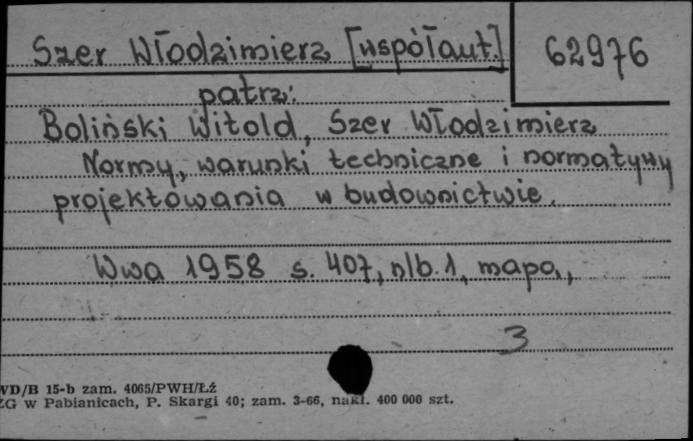 Szer Włodzimierz [współaut.] 62976
patrz:
Boliński Witold, Szer Włodzimierz
Normy, warunki techniczne i normatywy
projektowania w budownictwie.
Wwa 1958 s. 407, nlb. 1, mapa,
3
WD/B 15-b zam. 4065/PWH/Łź
ZG w Pabianicach, P. Skargi 40; zam. 3-66, nakł. 400 000 szt.